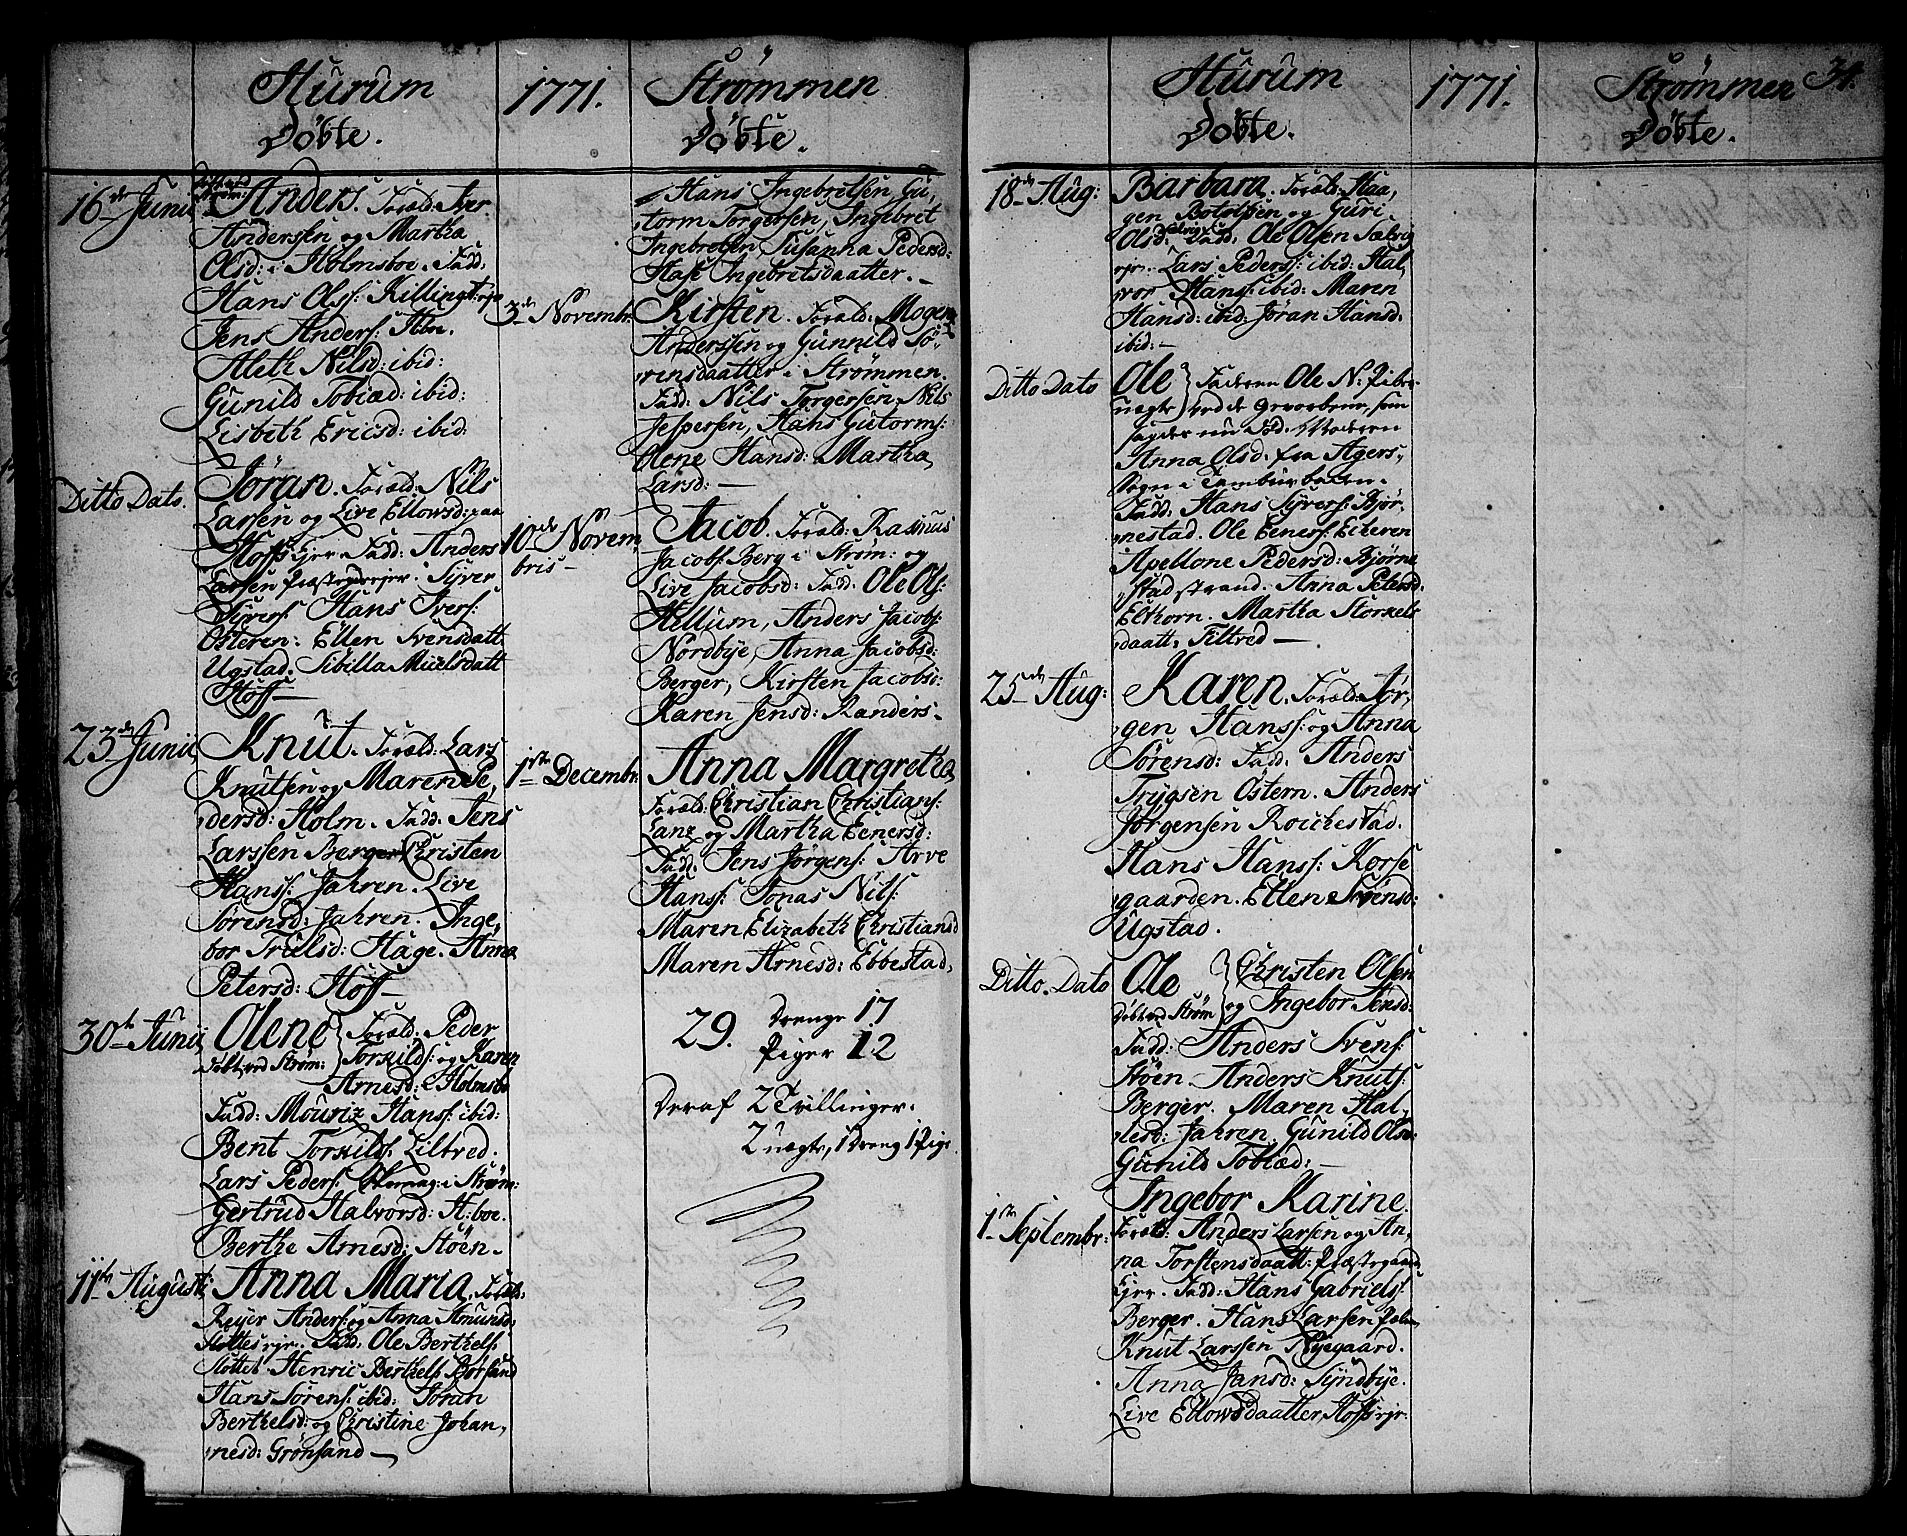 Hurum
Døbte.
1771.
Strømmen
Døbte.
16de Junii
Anders. Foræld: Iver
Anderssen og Martha
Olsd: i Holmsboe. Fadd:
Hans Olss: Killingst: ejer
Jens Anderss: Hbo.
Aleth Nilsd: ibid:
Gunild Tobiæd: ibid:
Lisbeth Ericsd: ibid:
Ditto Dato.
Jøran. Foræld: Nils
Larssen og Live Ellowsd: paa
Hoffs Ejer Fadd: Anders
Larssen Præstegrejer. Syver
Syverss: Hans Iverss:
Østeren: Ellen Svensdatt
Ugstad. Sibilla Nielsdatt
Hoff—
23de Junii
Knut. Foræld: Lars
Knutsen og Maren Pe,
dersd: Holm. Fadd: Jens
Larssen Berger Christen
Hanss: Jahren. Live
Sørensd: Jahren. Inge,
bor Truelsd: Hage. Anna
Petersd: Hoff—
30te Junii
Olene Foræld: Peder
Døbt ved Strøm: Torkilds: og Karen
Arnesd: Holmsbo
Fadd: Mouriz Hanss: ibid:
Bent Torkilds: Tiltred.
Lars Pederss: i Strøm:
Gertrud Halvorsd: H: boe.
Berthe Arnesd: Støen-
11te Augusti
Anna Maria. Foræld:
Rejer Anderss: og Anna Amunsd:
Slottet ejr. Fadd: Ole Berthelss:
Slottet Henric Berthels: Børsund
Hans Sørenss: ibid: Jøran
Berthelsd: og Christine Johan,
nesd: Grønsand—
Hans Ingebretsen, Gu,
torm Torgersen, Ingebret
Ingebretsen Susanna Pedersd:
Hage Ingebritsdaatter.—
3de Novembr:
Kirsten. Foræld: Mogens
Anderssen og Gunnild Sø,
rensdaatter i Strømmen.
Fadd: Nils Torgersen, Nils
Jespersen, Hans Gutorms:
Olene Hansd: Martha
Larsd:—
10de Novem,
bris—
Jacob. Foræld: Rasmus
Jacobs: Berg i Strøm: og
Live Jacobsd: Fadd: Ole Ols:
Hellum, Anders Jacobs:
Nordbye, Anna Jacobsd:
Berger, Kirsten Jacobsd:
Karen Jensd: Randers-
1ste Decembr:
Anna Margretha
Foræld: Christian Christians:
Lanz og Martha Eenersd:
Fadd: Jens Jørgens: Arve
Hanss: Jonas Nils:
Maren Elizabeth Christiansd
Maren Arnesd: Ebbestad,
29. Drenge 17
Piger 12
Deraf 2 Tvillinger.
2 uægte, 1 Dreng 1 Pige.
Hurum
Døbte.
1771.
Strømmen
Døbte.
34.
18de Aug:
Barbara. Foræld: Haa,
gen Botolfsen og Guri
Olsd: Fadd: Ole Olsen Sælvig
ejr. Lars Pederss: ibid: Hal,
vor Hanss: ibid: Maren
Hansd: ibid: Jøran Hansd.
ibid:—
Ditto Dato
Ole Faderen Ole N:
uægte
Moderen
Anna Olsd: fra Agers,
Sogn i
Fadd: Hans Syverss: Bjør,
nestad. Ole Eenerss: Ekeren
Apellone Pedersd: Bjørne
stad strand: Anna Petersd.
Elthorn. Martha Storkels
daatt: Tiltred—
25de Aug:
Karen. Foræld: Jør,
gen Hanss: og Anna
Sørensd: Fadd: Anders
Trygsen Østern. Anders
Jørgensen Rokkestad.
Hans Hanss: Korse
gaarden. Ellen Svensd:
Ugstad.
Ditto. Dato
Ole Christen Olsen
Døbt ved Strøm og Ingebor Jensd:
Fadd: Anders Svens:
Støen. Anders Knuts:
Berger. Maren Hal,
lesd: Jahren. Gunild Olsd:
Gunild Tobiæd:—
1ste Septembr:
Ingebor Karine.
Foræld: Anders Larsen og An,
na Torstensdaatt: Præstegaard
Ejer. Fadd: Hans Gabrielss:
Berger. Hans Larsen
Knut Larssen Nyegaard.
Anna Jansd: Syndbye.
Live Ellowsdaatter, Hoffs ejr.